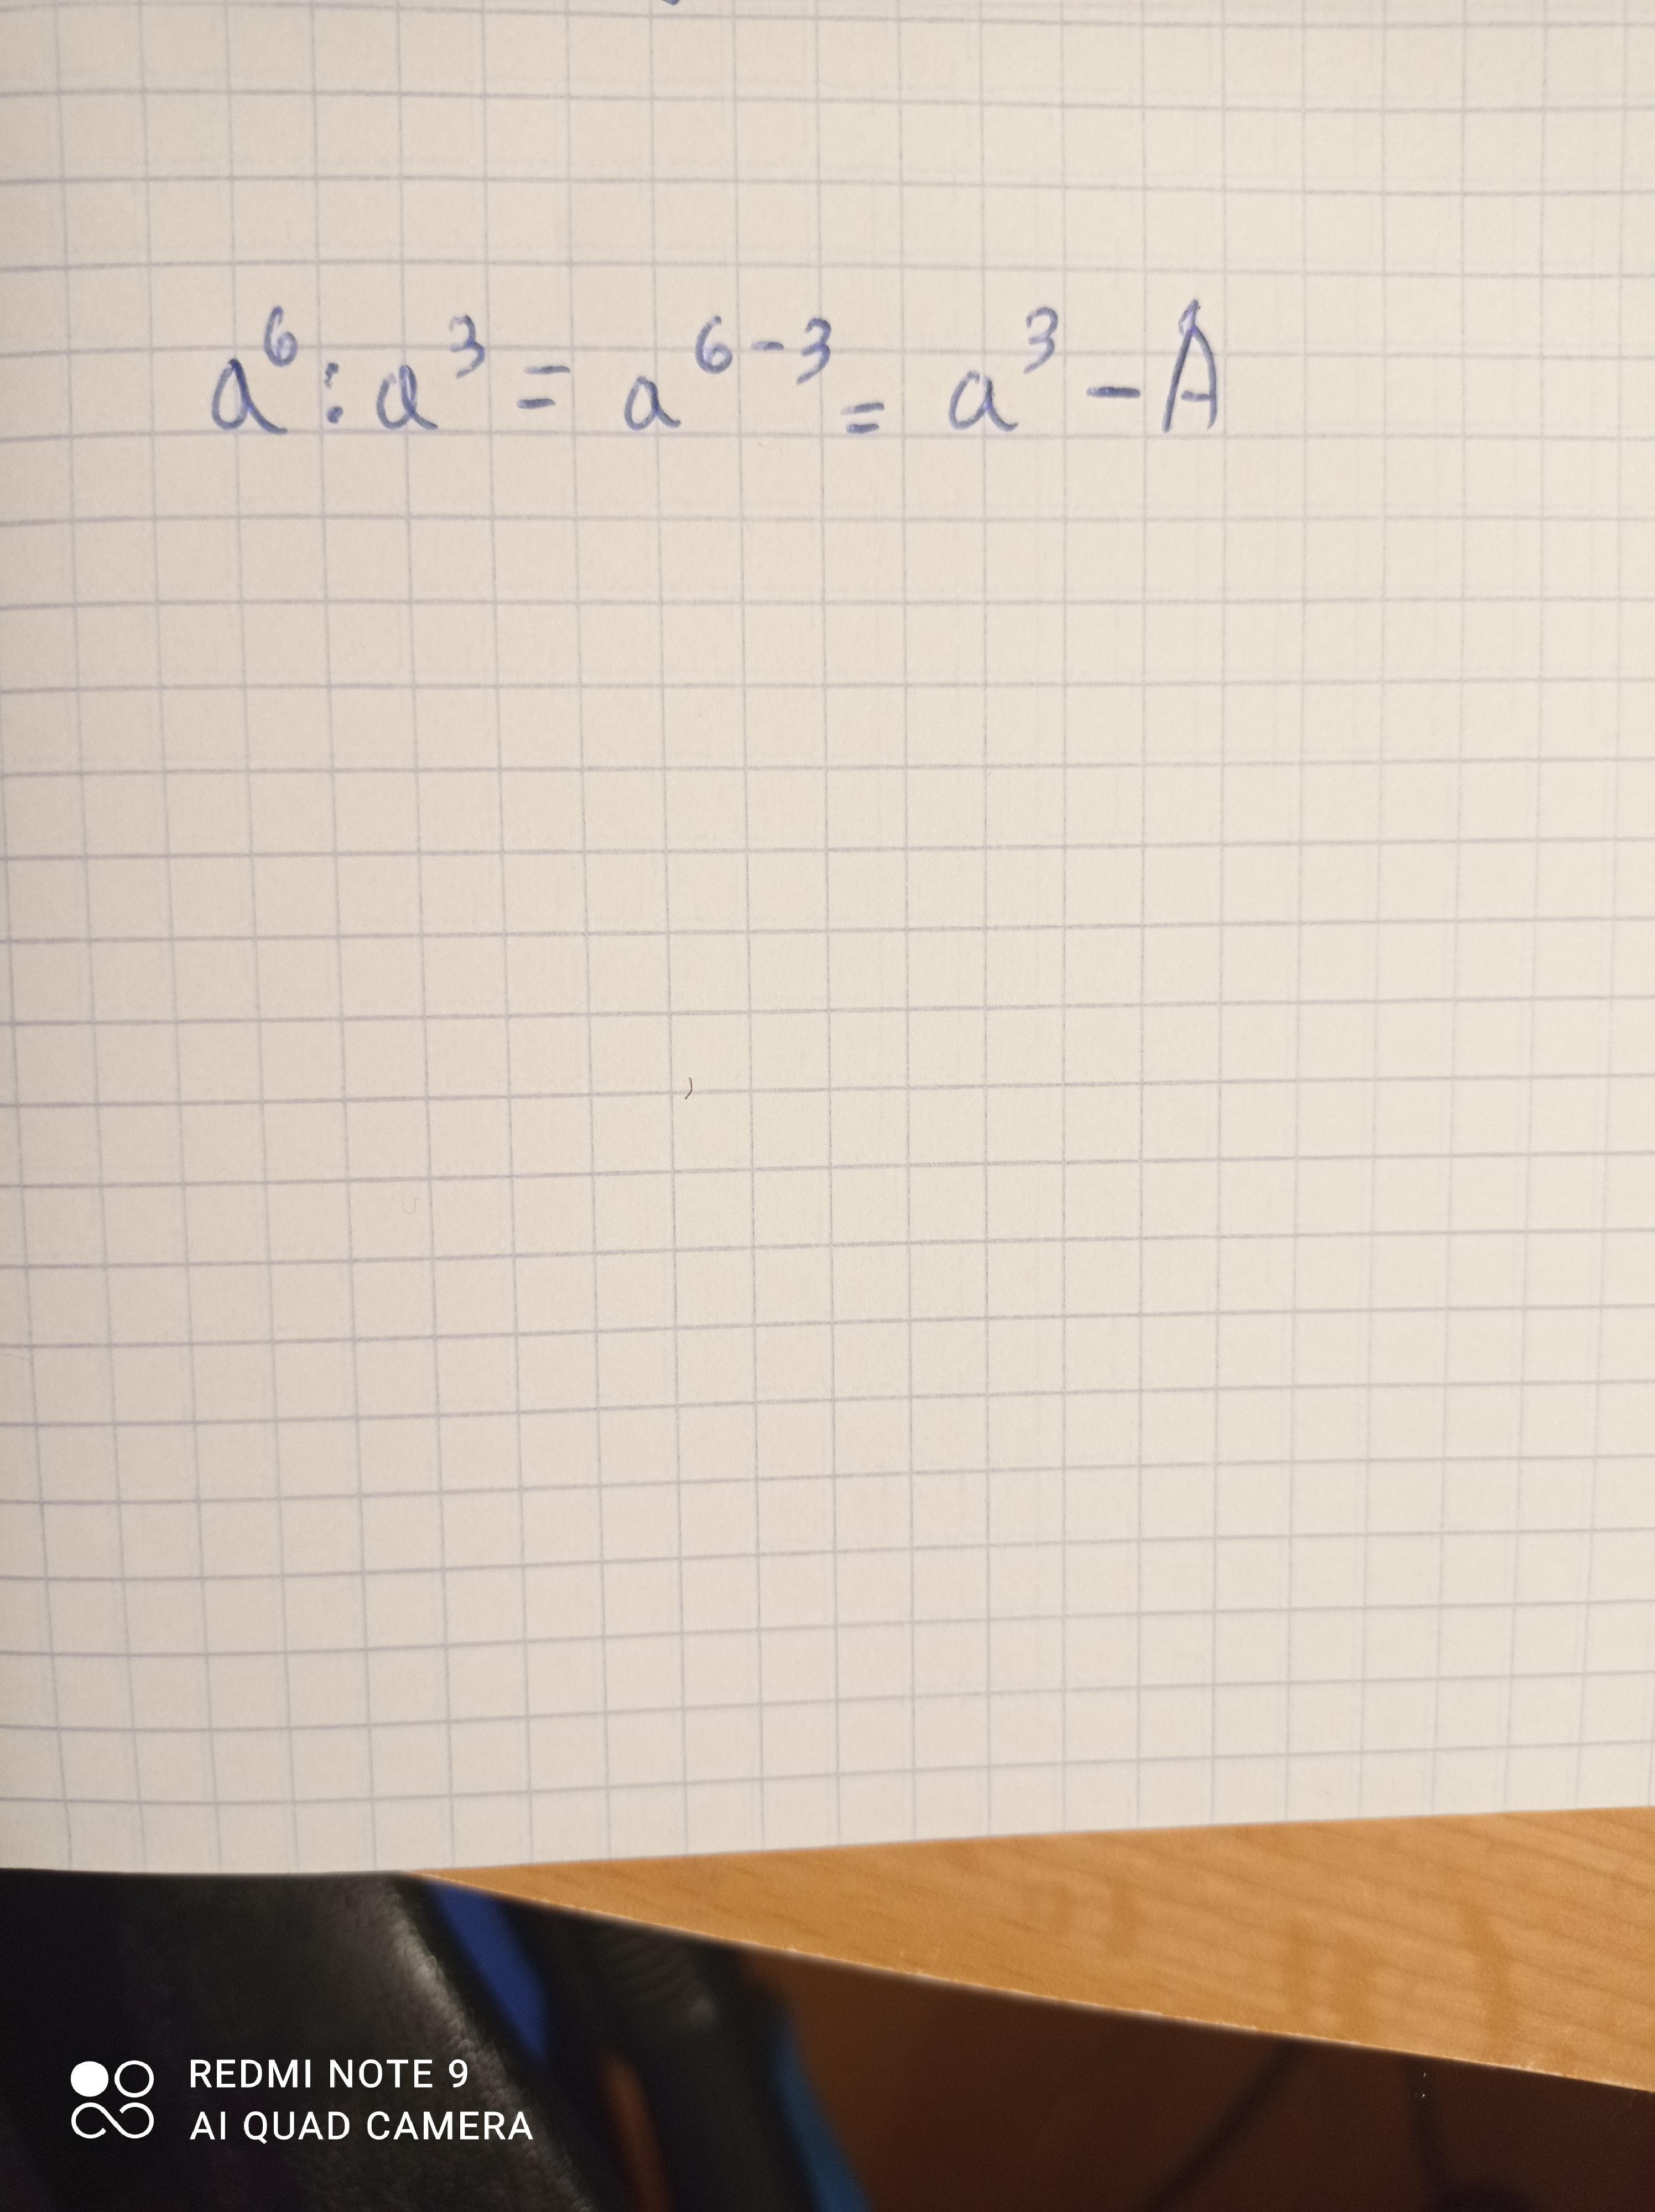 a⁶ : a³ = a⁶⁻³ = a³ - A
REDMI NOTE 9
AI QUAD CAMERA